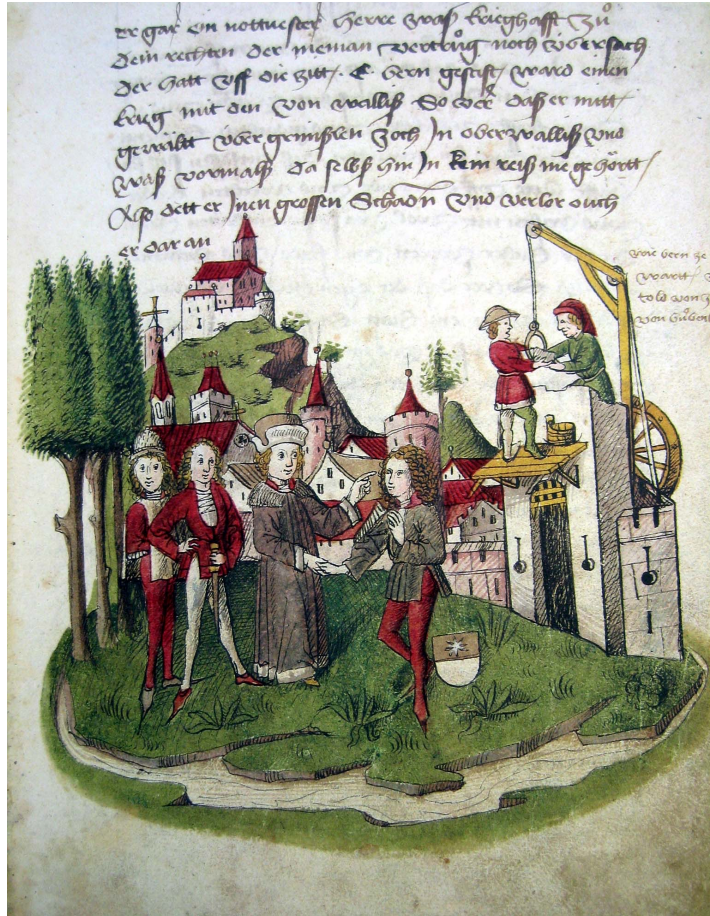 er gar ein nottvester herre waß krieghafft zů
dem rechten der nieman vertrůg noch übersach
der hatt uff die zitt E bern gestift ward einen
krieg mit den von walliß So ver daß er mitt
gewaltt über grimßlen zoch In oberwalliß und
waß vormalß da selbß hin In kein reiß nie gehörtt
Also dett er Inen grossen Schadn und verlor ouch
er dar an
wie bern ge
wartt
von